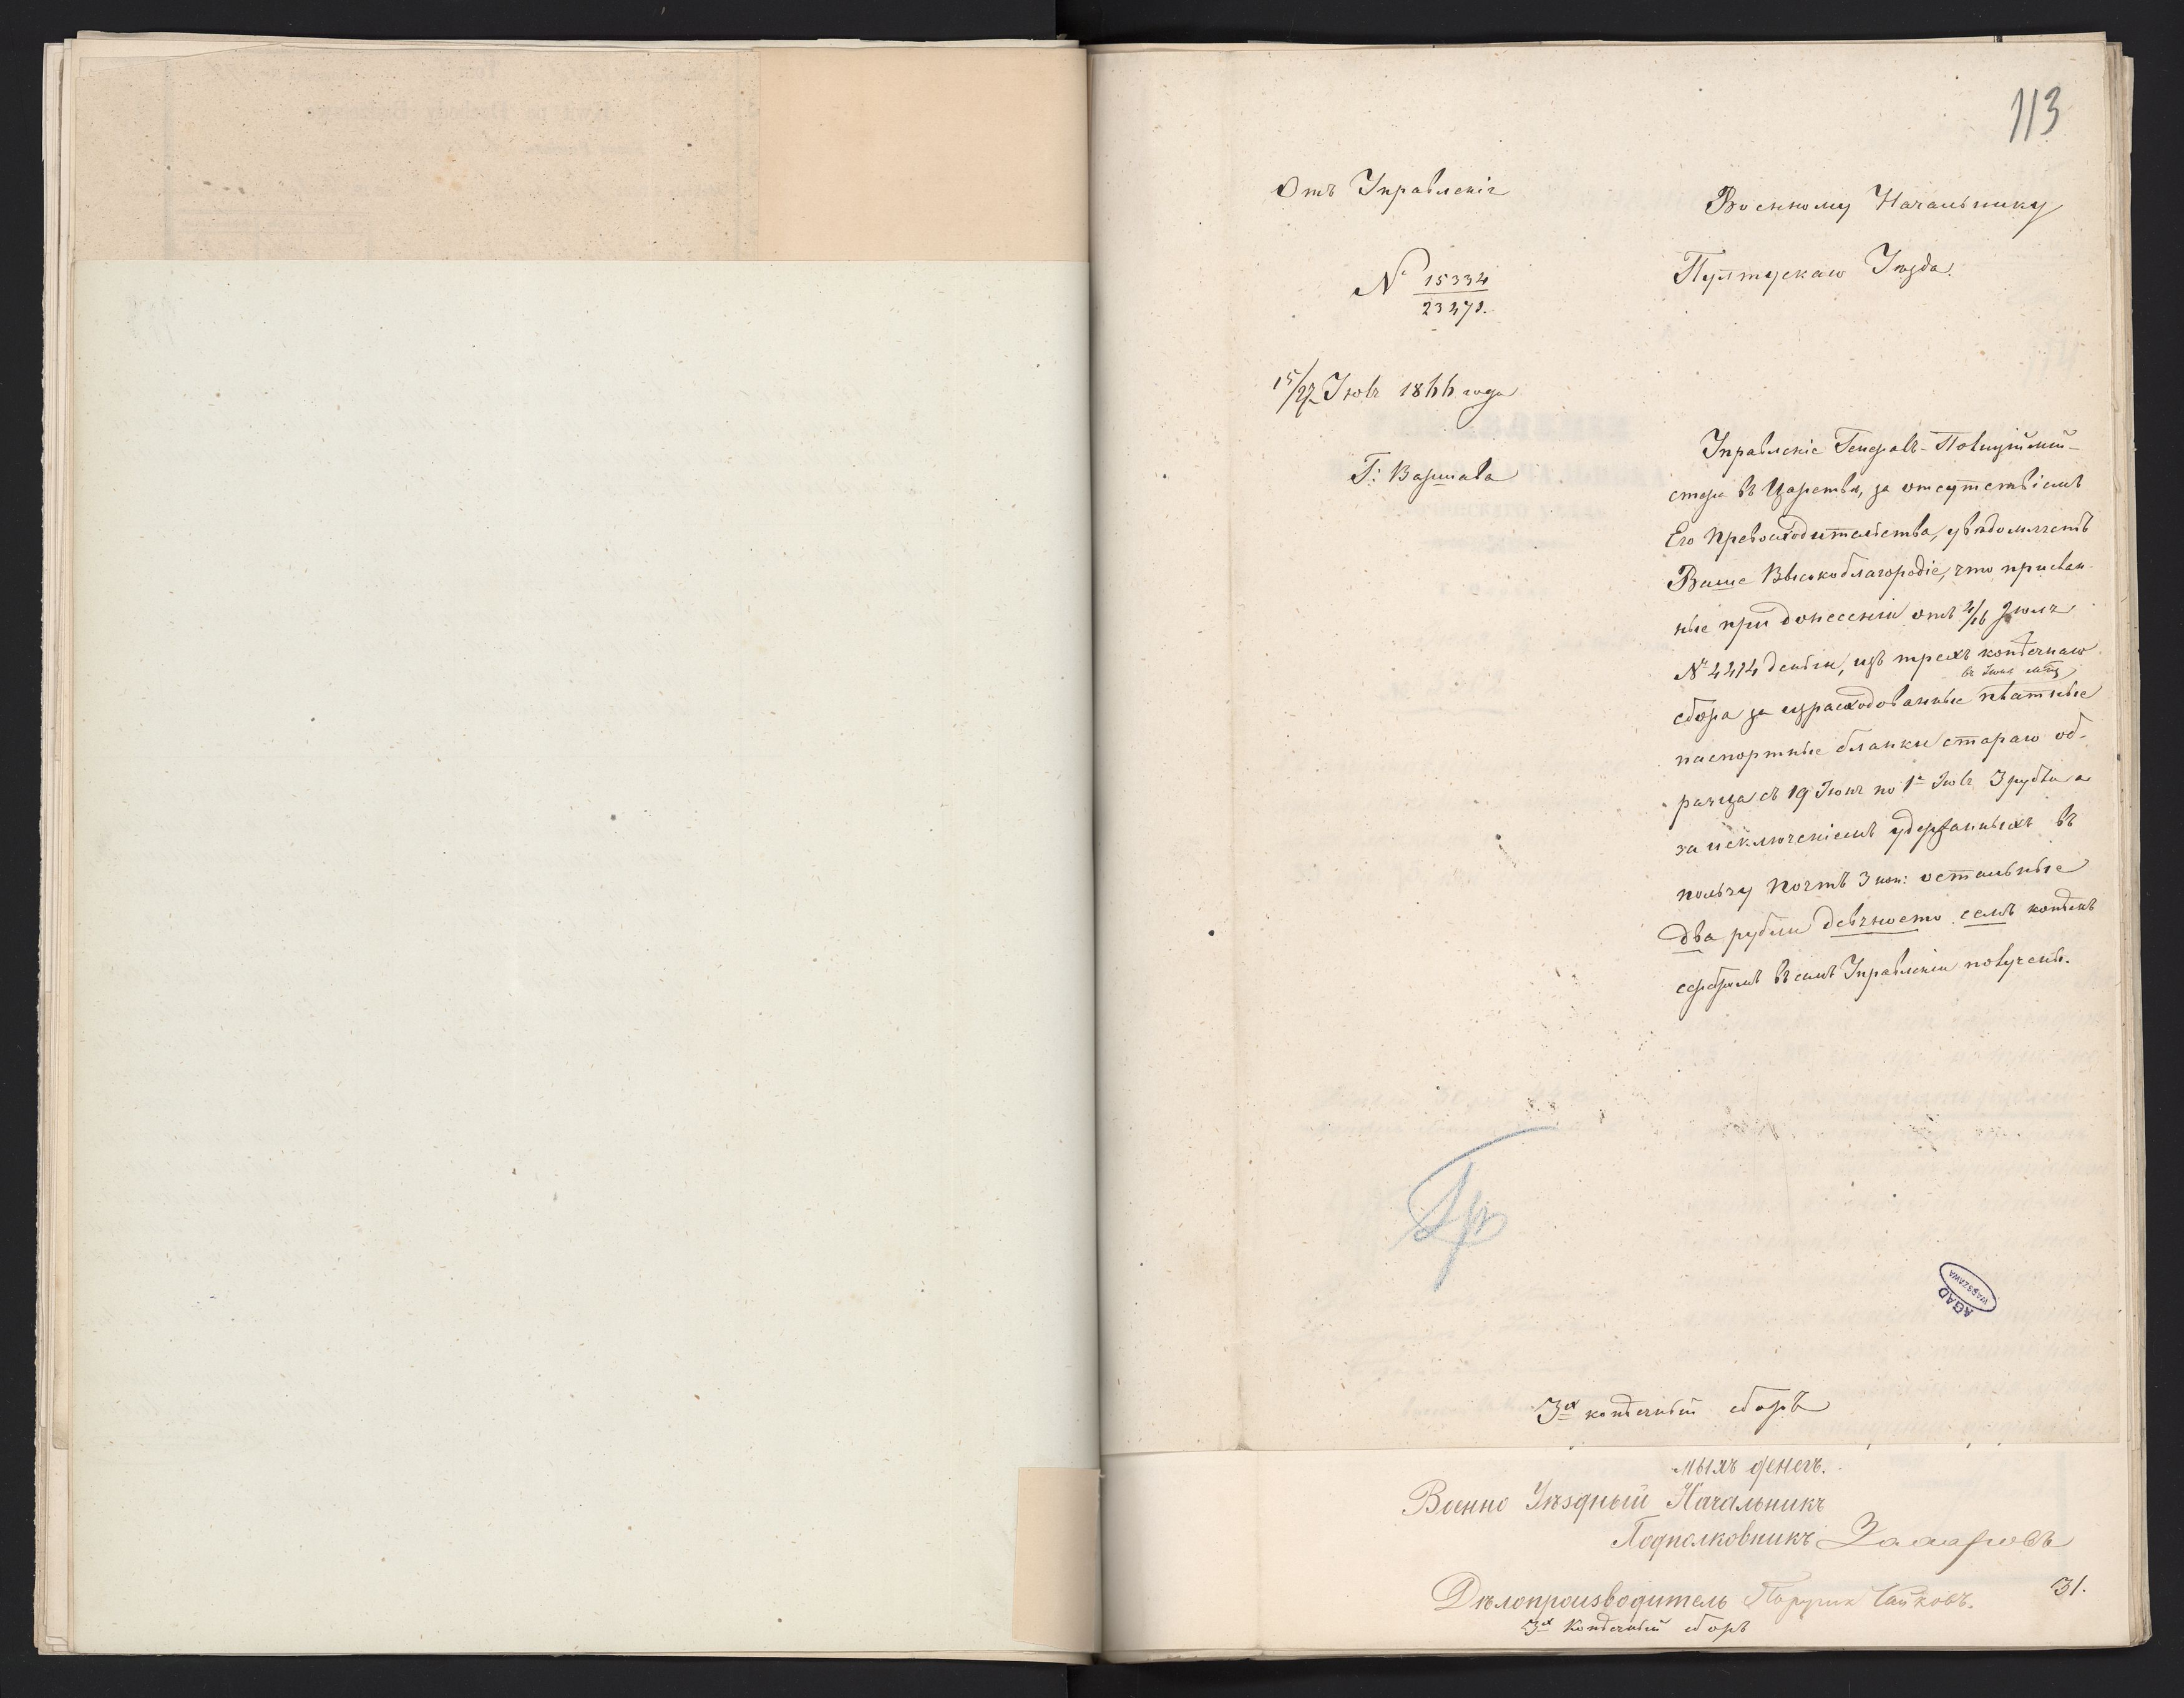 113
Отъ Управленія
Военному Начальнику
Пултускаго Уѣзда.
№ 15334
23271.
15/27 Іюля 1866 года
Г: Варшава
Управленіе Генералъ-Полицiймей-
стера въ Царствѣ, за отсутствіемъ
Его Превосходительства, увѣдомляетъ
Ваше Высокоблагородіе, что прислан-
ные при донесеніи отъ 4/16 Іюля
№ 4414 деньги, изъ трехъ копѣечнаго
въ Іюнѣ мѣсяцѣ
сбора за израсходованные платные
паспортные бланки стараго об-
разца съ 19 Іюня по 1е Іюля 3 рубли а
за исключеніемъ удержанныхъ въ
пользу Почтъ 3 коп: остальные
два рубли девяносто семь копѣекъ
серебромъ въ семъ Управленіи получены.
AGAD
WARSZAWA
3х копѣечный сборъ
мыхъ денегъ.
Военно Уѣздный Начальникъ
Подполковникъ
Дѣлопроизводитель Поручик
31.
3х Копѣечный сборъ